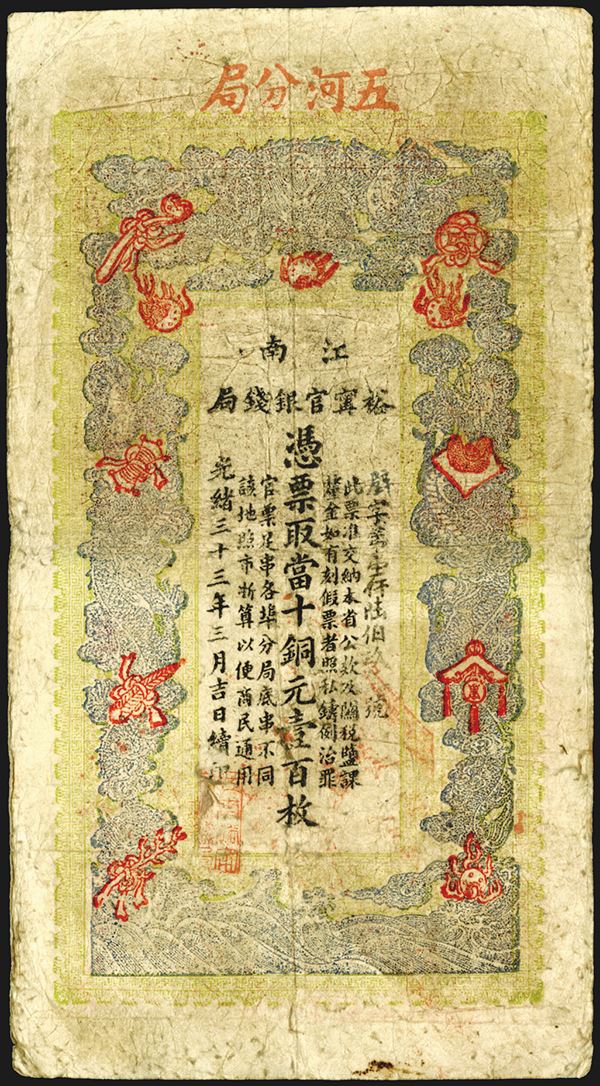 五河分局
江南
裕寧官銀錢局
此票准交納本省公款及關稅鹽課
釐金如有刻假票者照私鑄例治罪
憑票取當十銅元壹百枚
官票足串各埠分局底串不同
該地照市折算以便商民通用
光緒三十三年三月吉日續印